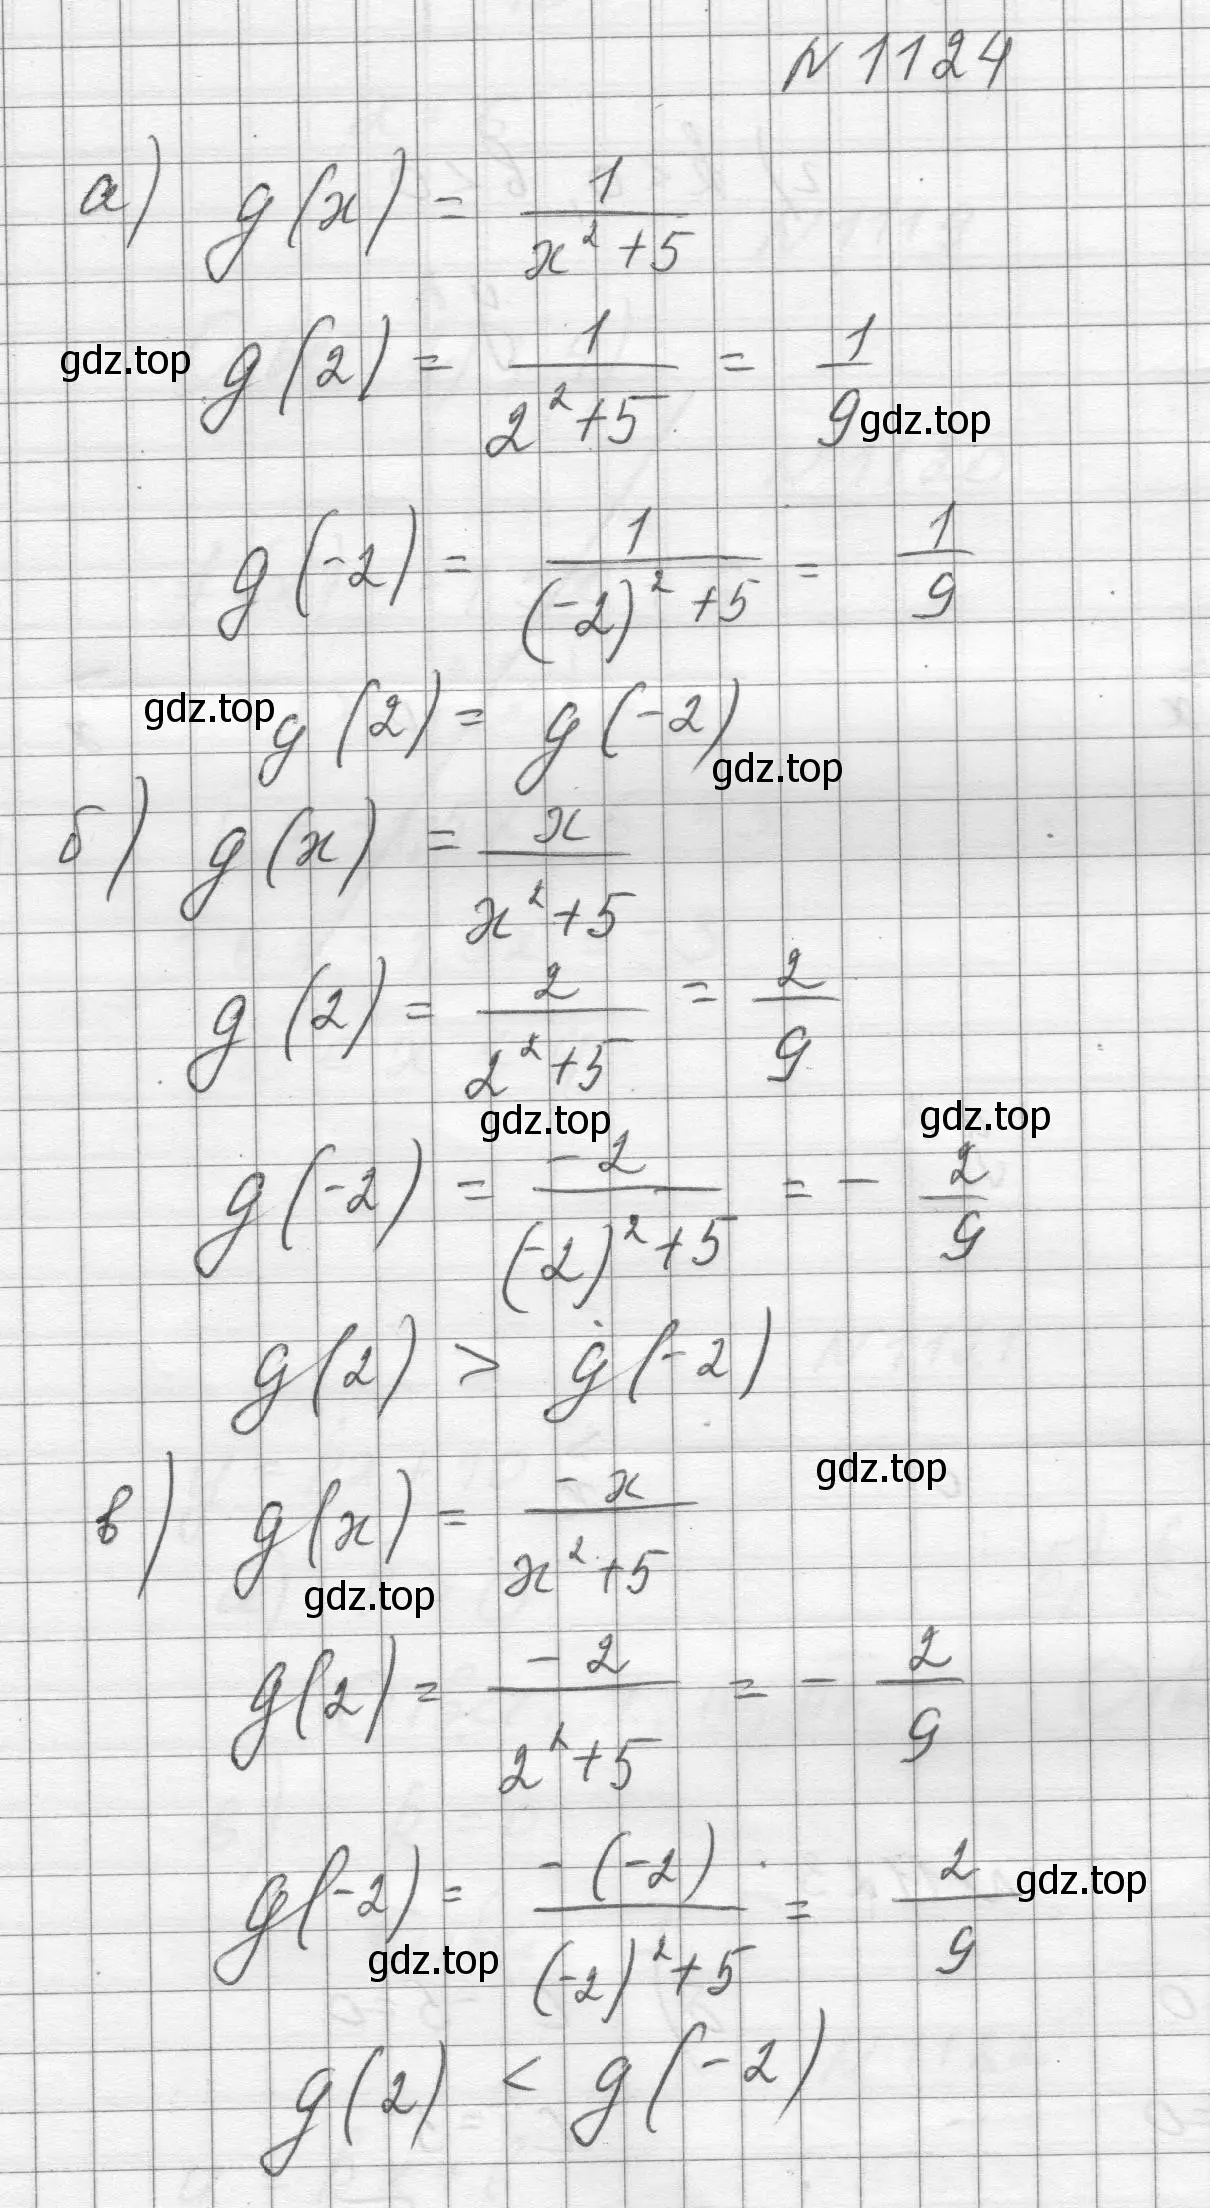 № 1124
а) g(x) = 1/(x² + 5)
gdz.top
g(2) = 1/(2² + 5) = 1/9
gdz.top
g(-2) = 1/((-2)² + 5) = 1/9
gdz.top
g(2) = g(-2)
gdz.top
б) g(x) = x/(x² + 5)
g(2) = 2/(2² + 5) = 2/9
gdz.top
gdz.top
g(-2) = -2/((-2)² + 5) = - 2/9
g(2) > g(-2)
gdz.top
в) g(x) = -x/(x² + 5)
gdz.top
g(2) = -2/(2² + 5) = - 2/9
g(-2) = -(-2)/((-2)² + 5) = 2/9
gdz.top
gdz.top
g(2) < g(-2)